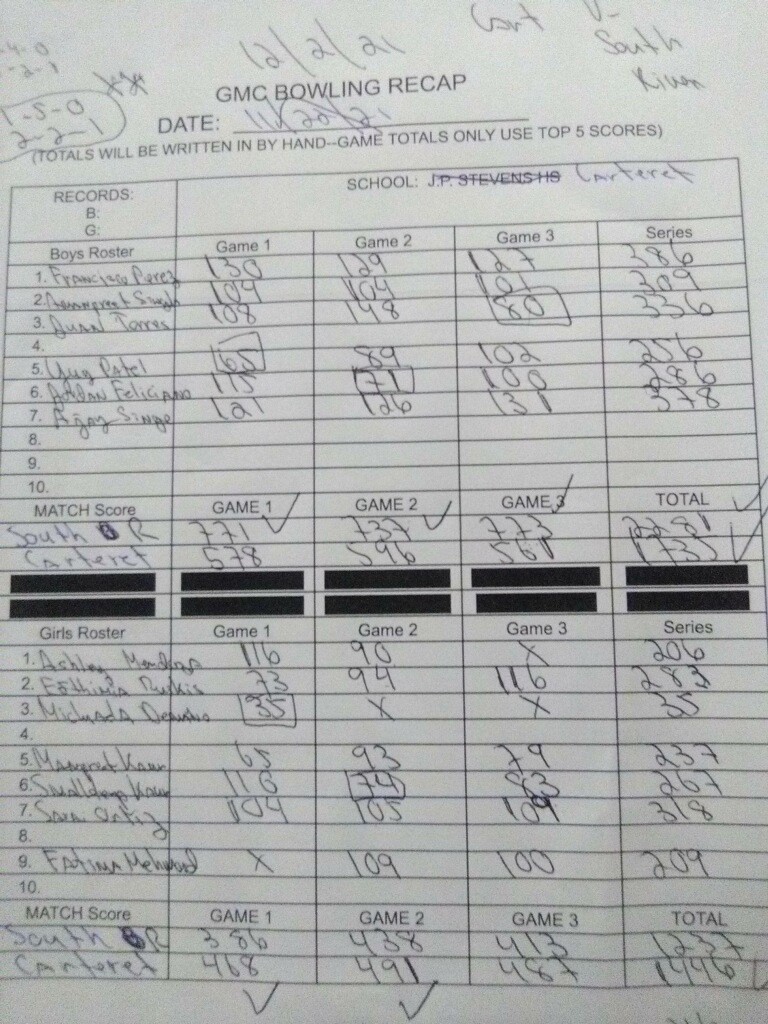 12/2/21
Cart V-
South
River
-4-0
-2-1
**
1-5-0
2-2-1
GMC BOWLING RECAP
DATE: 11/22/21
(TOTALS WILL BE WRITTEN IN BY HAND--GAME TOTALS ONLY USE TOP 5 SCORES)
RECORDS: SCHOOL: J.P. STEVENS HS Carteret
B:
G:
Boys Roster Game 1 Game 2 Game 3 Series
1. Francisco Perez 130 129 127 386
2. Singh 104 104 101 309
3. Juan Torres 108 148 80 336
4.
5. Yug Patel 65 89 102 256
6. Feliciano 115 71 100 286
7. Ajay Singe 121 126 131 378
8.
9.
10.
MATCH Score GAME 1 GAME 2 GAME 3 TOTAL
South R 771 737 773 2281
Carteret 578 596 561 1735
Girls Roster Game 1 Game 2 Game 3 Series
1. Ashley 116 90 X 206
2. 73 94 116 283
3. 35 X X 35
4.
5. Kaur 65 93 79 237
6. Kaur 110 74 83 267
7. Sara Ortiz 104 105 109 318
8.
9. Fatima Mehmood X 109 100 209
10.
MATCH Score GAME 1 GAME 2 GAME 3 TOTAL
South R 386 438 413 1237
Carteret 468 491 487 1446